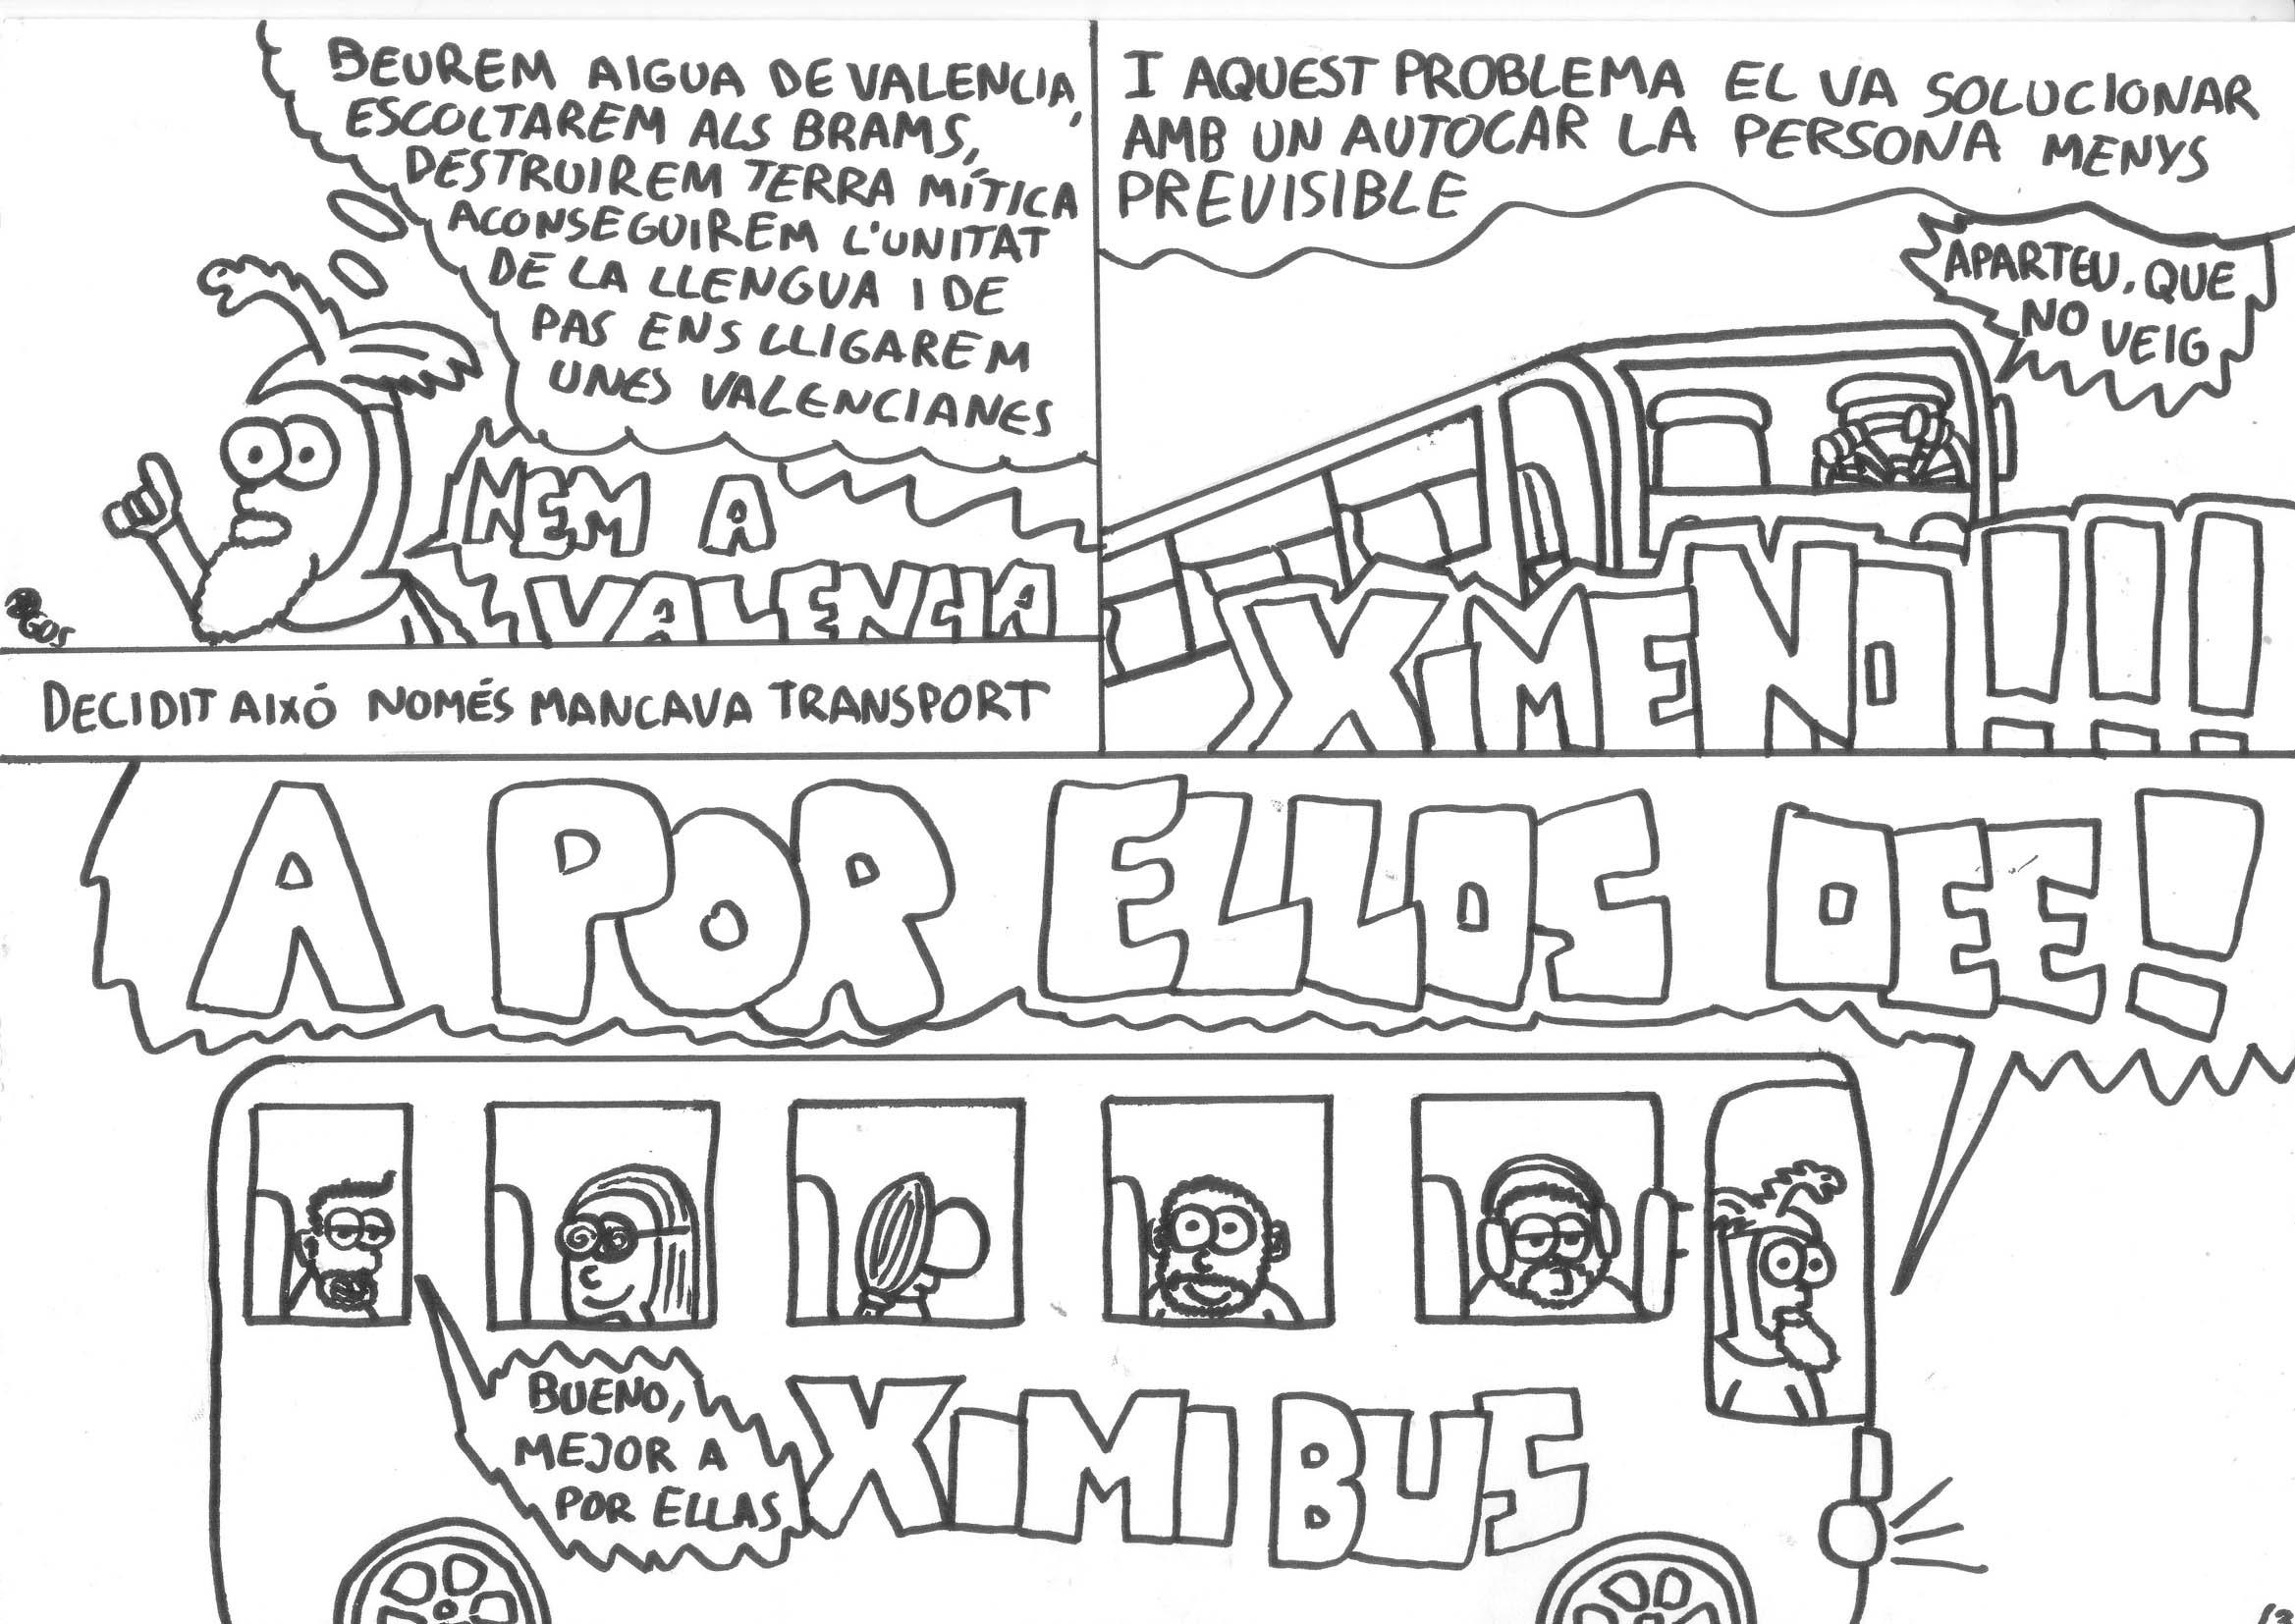 BEUREM AIGUA DE VALENCIA,
ESCOLTAREM ALS BRAMS,
DESTRUIREM TERRA MÍTICA
ACONSEGUIREM L'UNITAT
DE LA LLENGUA I DE
PAS ENS LLIGAREM
UNES VALENCIANES
NEM A
VALENCIA
DECIDIT AIXÓ NOMÉS MANCAVA TRANSPORT
I AQUEST PROBLEMA EL VA SOLUCIONAR
AMB UN AUTOCAR LA PERSONA MENYS
PREVISIBLE
APARTEU, QUE
NO VEIG
XIMENO!!!
A POR ELLOS OEE!
BUENO,
MEJOR A
POR ELLAS
XIMI BUS